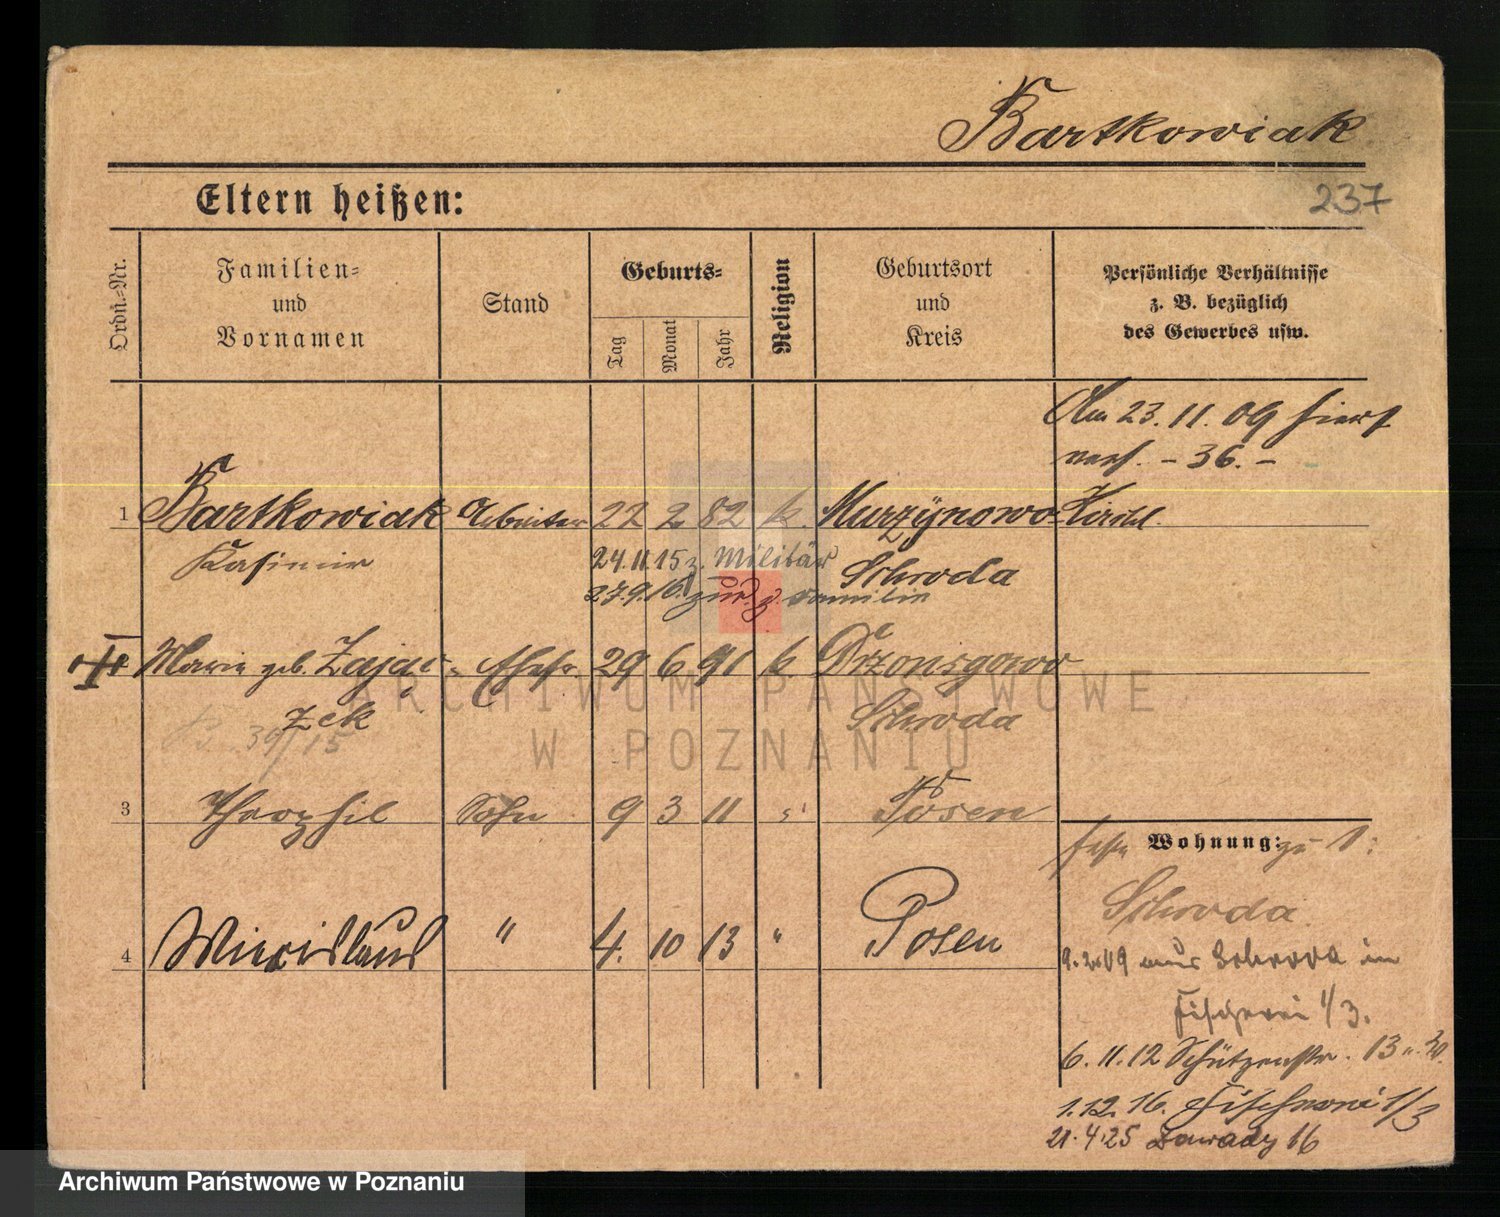 Bartkowiak
Eltern heißen:
237
Ordn.-Nr.
Familien-
und
Vornamen
Stand
Geburts-
Tag
Monat
Jahr
Religion
Geburtsort
und
Kreis
Persönliche Verhältnisse
z. B. bezüglich
des Gewerbes usw.
Am 23.11.09 hier
verh. - 36. -
1 Bartkowiak Arbeiter 22 2 82 k. Murzynowo Kirchl.
Kasimir
24.11.15 z. Militär
Schroda
27.9.16 zur. z. Familie
2 Marie geb. Zajda- Ehefr. 29 6 91 k.
zek
Schroda
39/15
3 Theophil Sohn 9 3 11 " Posen
Wohnung: zu 1:
Schroda
4 " 4. 10 13 " Posen
aus Schroda in
Fischerei 1/3.
6.11.12 Schützenstr. 13
1.12.16. Fischerei 1/3
21.4.25 Zawady 16
ARCHIWUM PAŃSTWOWE
W POZNANIU
Archiwum Państwowe w Poznaniu